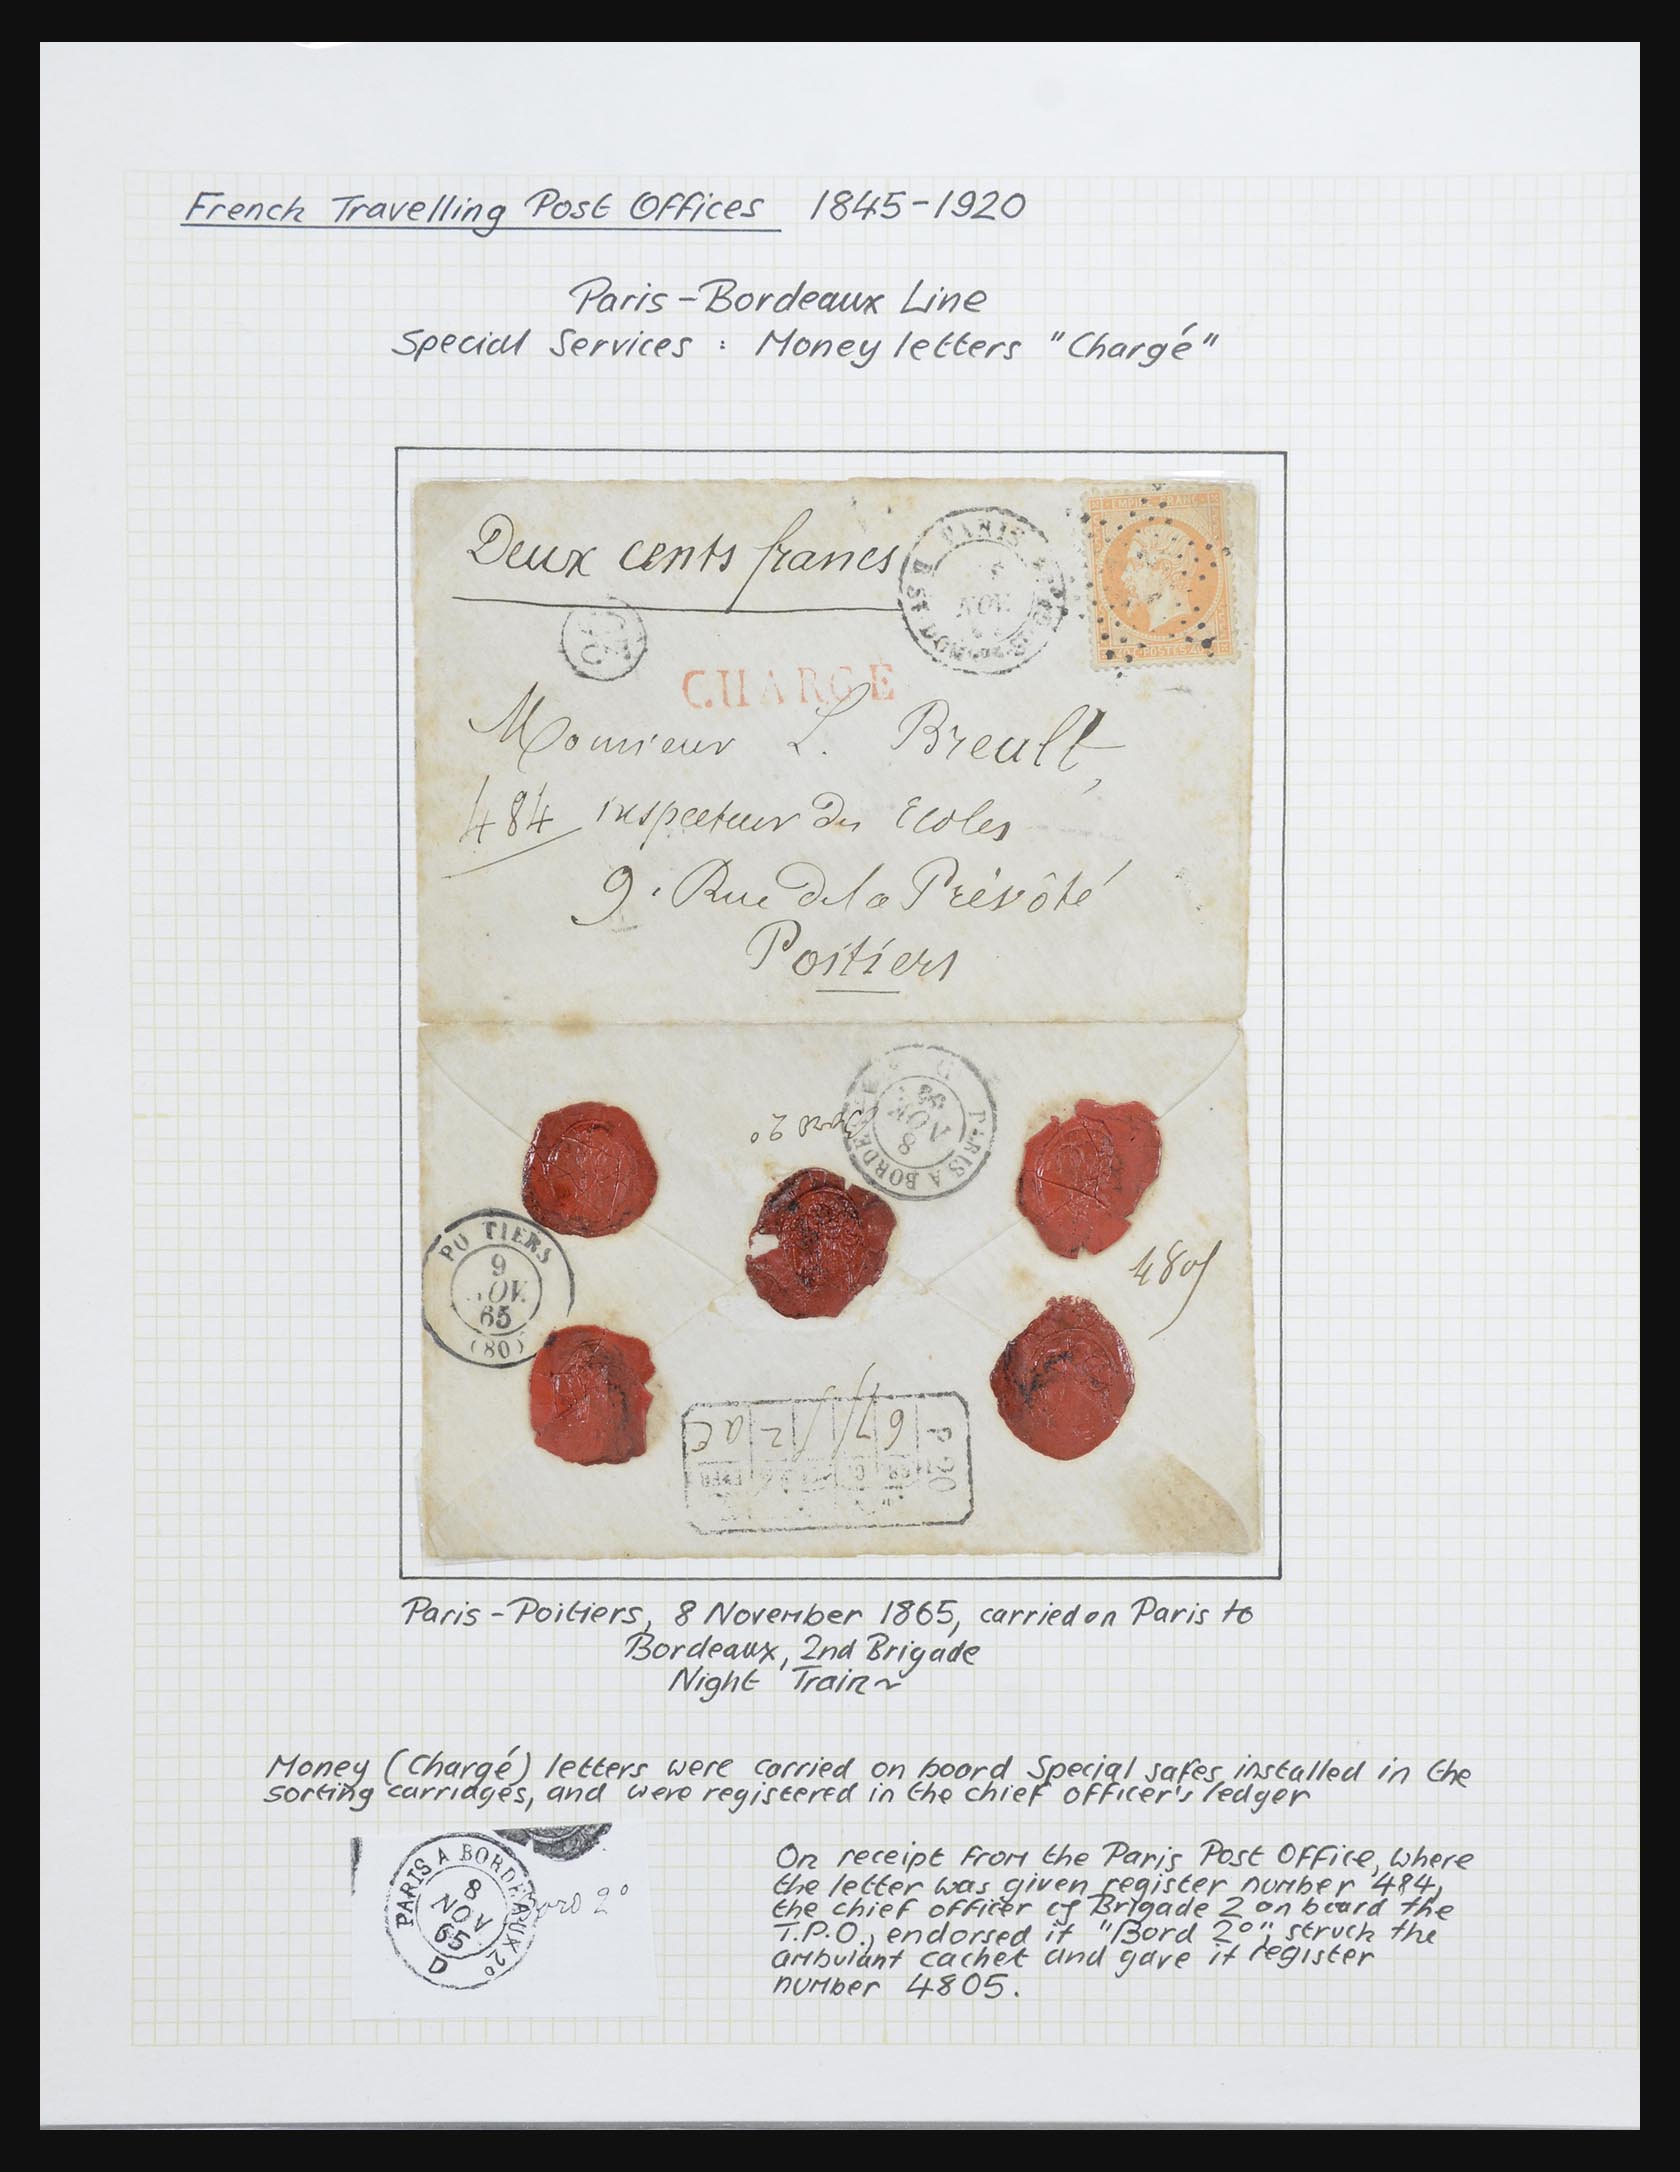 French Travelling Post Offices 1845-1920
Paris-Bordeaux Line
Special Services : Money letters "Chargé"
Deux cents francs
PARIS
NOV.
EMPIRE FRANC
POSTES
CHARGÉ
Monsieur L. Breult,
484 inspecteur des Ecoles
9. Rue de la Prévôté
Poitiers
PARIS A BORDE
8
NOV
65
D
Bord 2°
POITIERS
9
NOV.
65
(80)
4805
Paris-Poitiers, 8 November 1865, carried on Paris to
Bordeaux, 2nd Brigade
Night Train~
Money (Chargé) letters were carried on board Special safes installed in the
sorting carridges, and were registered in the chief officer's ledger
PARIS A BORDEAUX 2°
8
NOV
65
D
Bord 2°
On receipt from the Paris Post Office, where
the letter was given register number 484,
the chief officer of Brigade 2 on board the
T.P.O., endorsed it "Bord 2°", struck the
ambulant cachet and gave it register
number 4805.